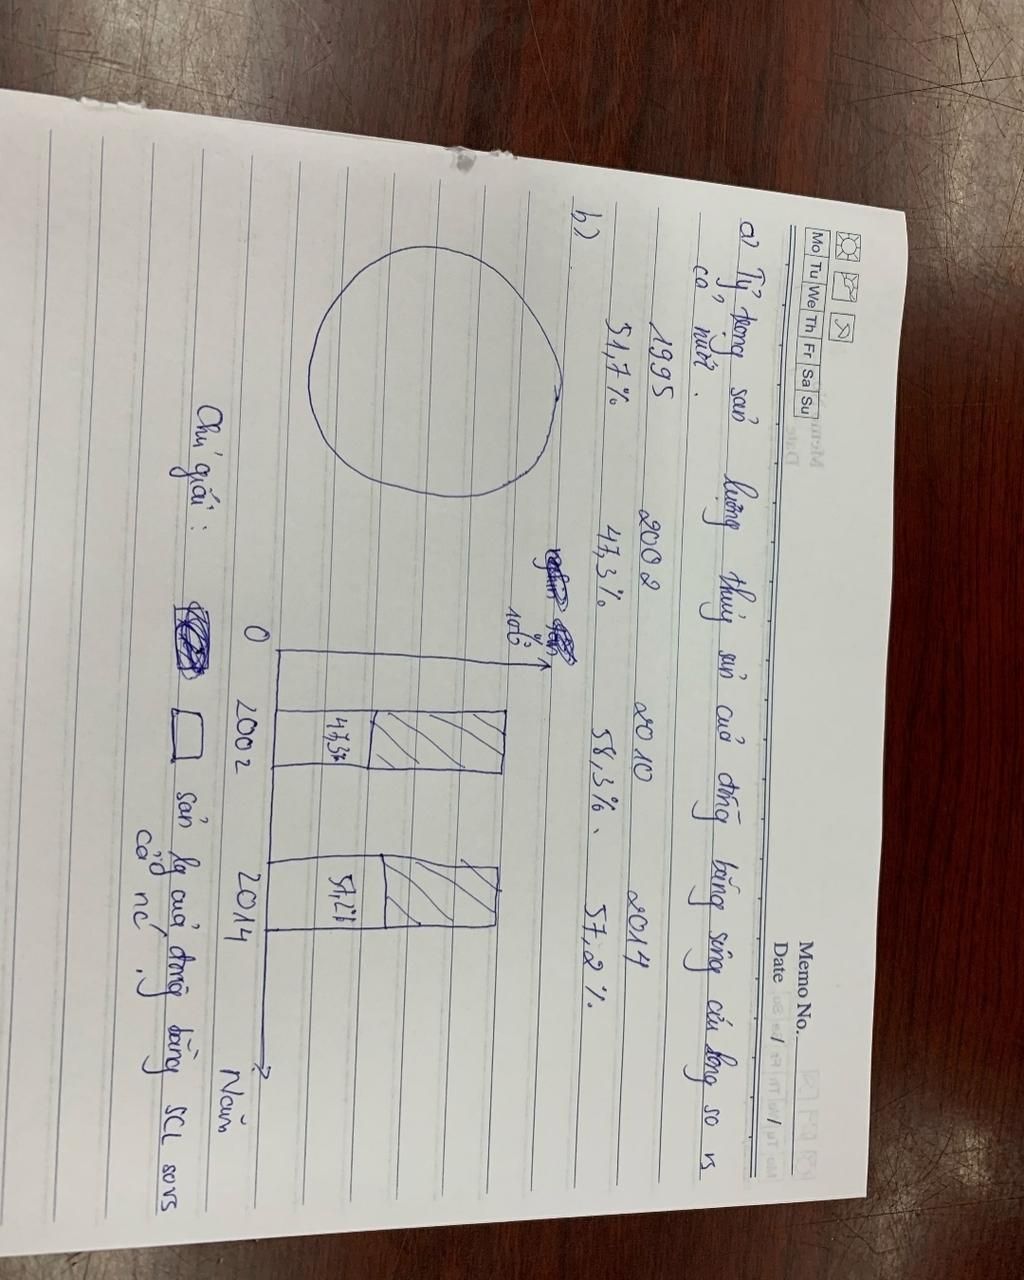 Memo No.
Mo Tu We Th Fr Sa Su
Date
a) Tỷ trọng sản lượng thuỷ sản của đồng bằng sông cửu long so vs
cả nước.
1995 2002 2010 2014
51,7% 47,3% 58,3%. 57,2%.
b)
%
100
47,3%
57,2%
0 2002 2014 Năm
Chú giải: sản lg của đồng bằng SCL so vs
cả nc